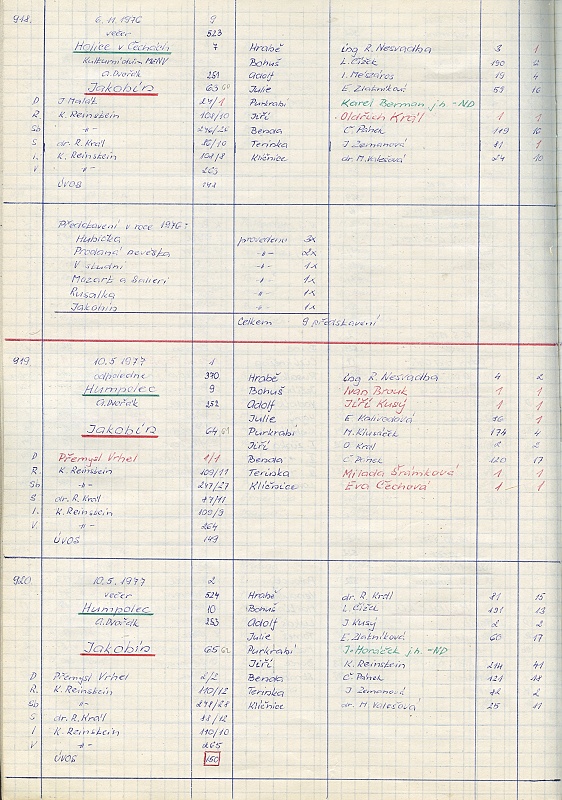 918. 6. 11. 1976 9
večer 523
Hořice v Čechách 7 Hrabě ing R. Nesvadba 3 1
Kulturní dům MěNV Bohuš L. Čížek 190 2
A. Dvořák 251 Adolf I. Mešťáros 19 4
Jakobín 63 Julie E. Zlatníková 59 16
D J. Malát 24/1 Purkrabí Karel Berman j.h. - ND
R. K. Reinstein 108/10 Jiří Oldřich Král 1 1
Sb -"- 246/26 Benda Č Pánek 119 16
S dr. R. Král 76/10 Terinka J Zemanová 11 1
I. K. Reinstein 108/8 Klíčnice dr. M. Valešová 24 10
V -"- 263
ÚVOS 148
Představení v roce 1976:
Hubička provedena 3x
Prodaná nevěsta -"- 2x
V studni -"- 1x
Mozart a Salieri -"- 1x
Rusalka -"- 1x
Jakobín -"- 1x
Celkem 9 představení
919. 10. 5. 1977 1
odpoledne 370 Hrabě ing R. Nesvadba 4 2
Humpolec 9 Bohuš Ivan Brouk 1 1
A. Dvořák 252 Adolf Jiří Kusý 1 1
Julie E Kalivodová 16 1
Jakobín 64 Purkrabí M. Kluváček 174 4
Jiří O Král 2 2
D Přemysl Vrhel 1/1 Benda Č Pánek 120 17
R. K. Reinstein 109/11 Terinka Milada Šrámková 1 1
Sb -"- 247/27 Klíčnice Eva Čechová 1 1
S dr. R. Král 77/11
I. K. Reinstein 109/9
V. -"- 264
ÚVOS 149
920 10. 5. 1977 2
večer 524 Hrabě dr. R. Král 81 15
Humpolec 10 Bohuš L. Čížek 191 13
A. Dvořák 253 Adolf J Kusý 2 2
Julie E. Zlatníková 60 17
Jakobín 65 Purkrabí J. Horáček j.h. - ND
Jiří K. Reinstein 214 41
D Přemysl Vrhel 2/2 Benda Č Pánek 121 18
R. K. Reinstein 110/12 Terinka J Zemanová 12 2
Sb -"- 248/28 Klíčnice dr. M. Valešová 25 11
S dr. R. Král 78/12
I K. Reinstein 110/10
V -"- 265
ÚVOS 150